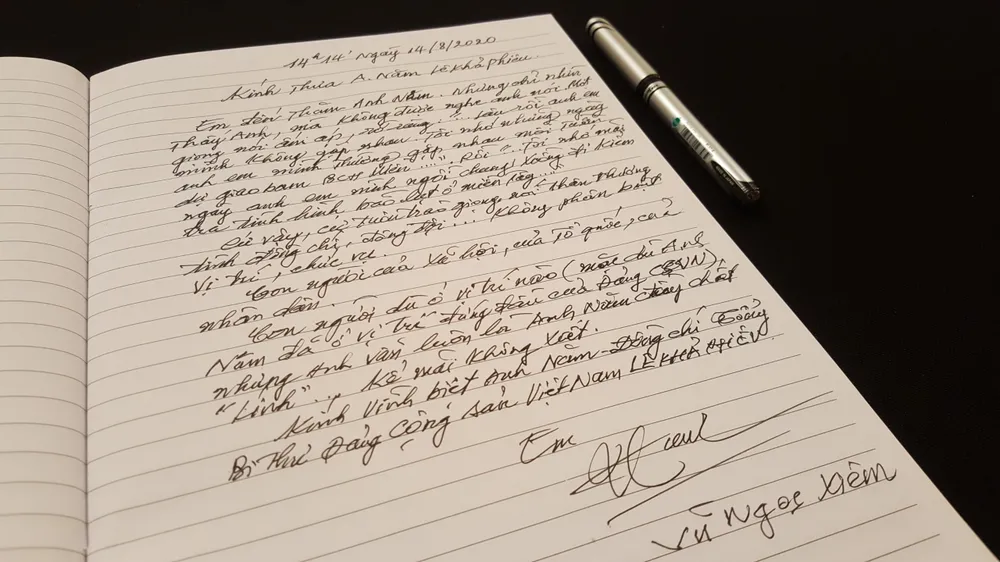 14h14' Ngày 14/8/2020
Kính Thưa A. Năm Lê Khả Phiêu.
Em đến Thăm Anh Năm. Nhưng chỉ nhìn
Thấy Anh, mà không được nghe anh nói. Một
giọng nói ấm áp, rõ ràng!... Lâu rồi anh em
mình không gặp nhau. Tôi nhớ những ngày
anh em mình thường gặp nhau mỗi Tuần
dự giao ban BCH Miền "..." Rồi "... Tôi nhớ mãi
ngày anh em mình ngồi chung xuồng đi kiểm
tra tình hình bão lụt ở miền Tây..."
Cứ vậy, cứ điều trao giọng nói thân thương
tình đồng chí, đồng đội... Không phân biệt
vị trí, chức vụ.
Con người của Xã hội, của Tổ quốc, của
nhân dân.
Con người dù ở vị trí nào (mặc dù Anh
Năm đã ở vị trí đứng đầu của Đảng CSVN),
nhưng Anh vẫn luôn là Anh Năm đầy chất
"Lính"... Kể mãi không xiết.
Kính Vĩnh biệt Anh Năm - Đồng chí Tổng
Bí Thư Đảng Cộng sản Việt Nam LÊ KHẢ PHIÊU.
Em
Vũ Ngọc Xiêm